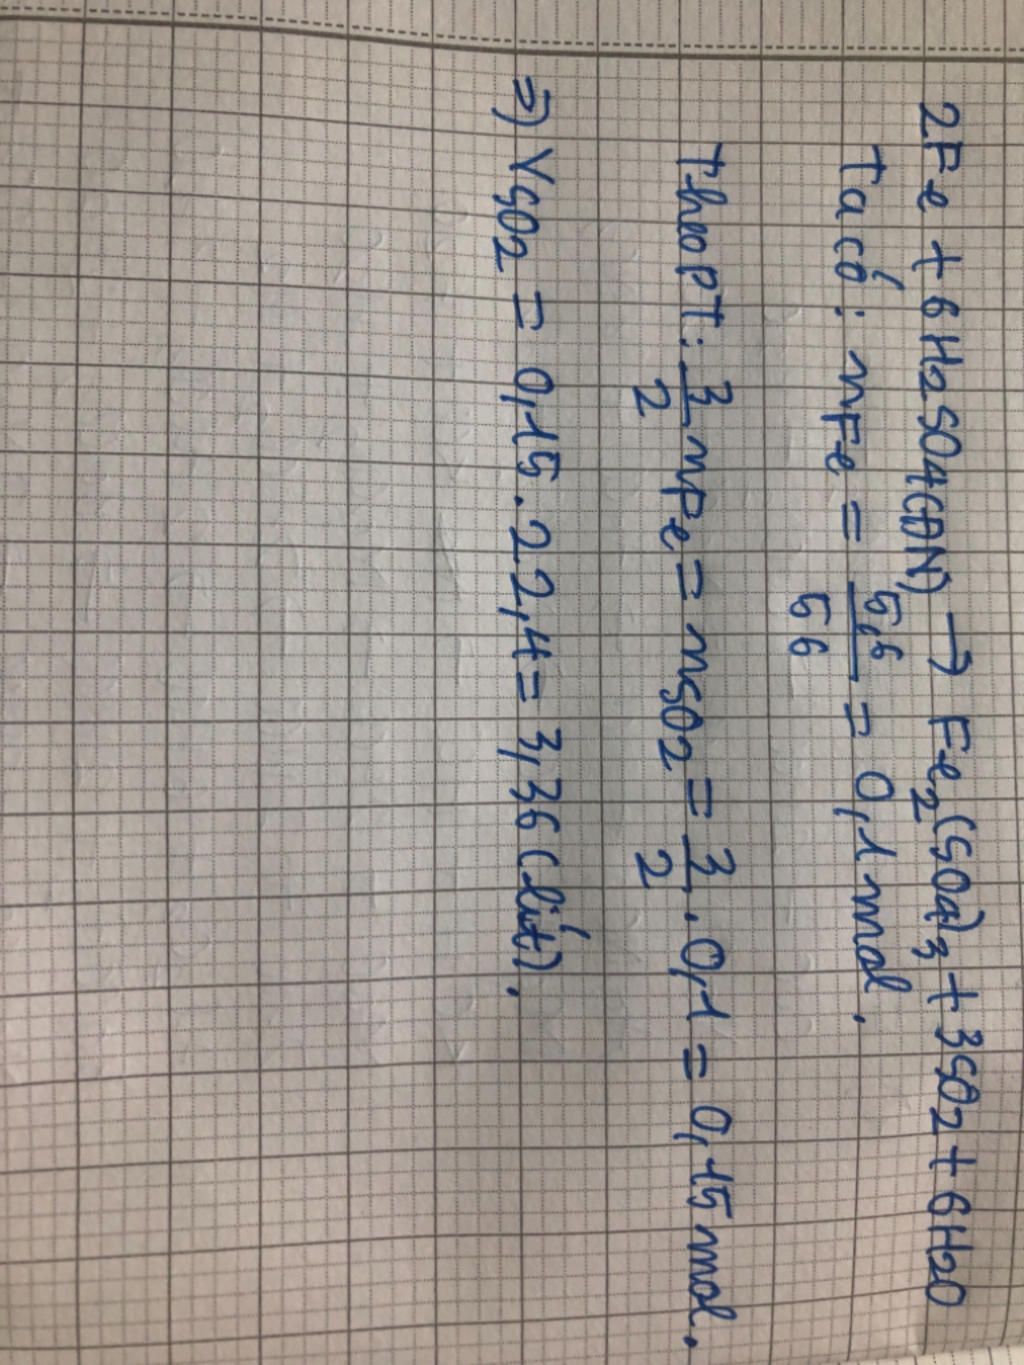 2Fe + 6H2SO4(ĐN) → Fe2(SO4)3 + 3SO2 + 6H2O
Ta có: nFe = 5,6/56 = 0,1 mol.
Theo PT: 3/2 nFe = nSO2 = 3/2 . 0,1 = 0,15 mol.
=) VSO2 = 0,15 . 22,4 = 3,36 (lít).